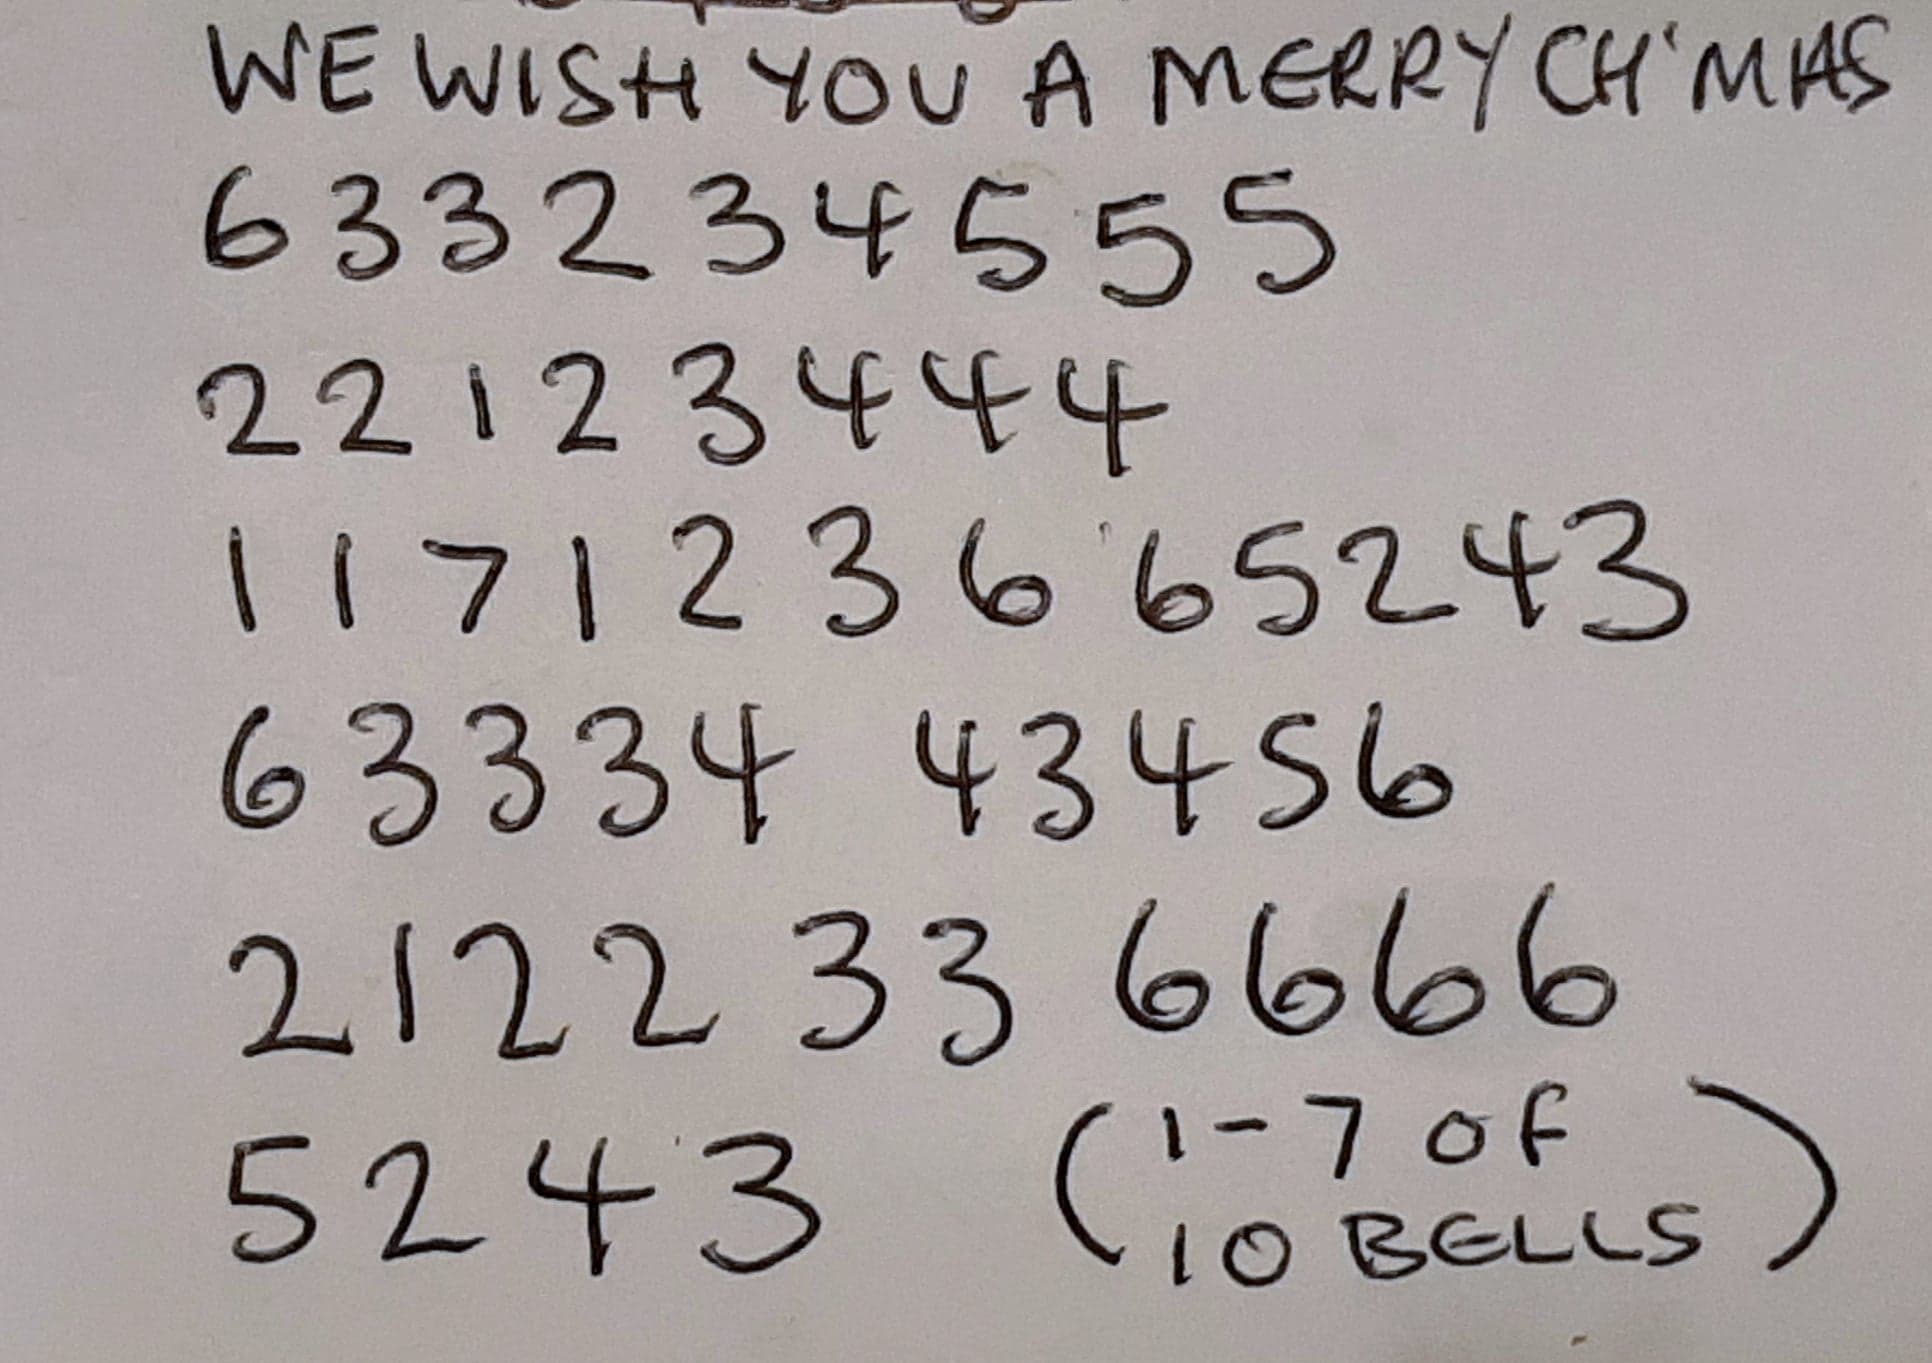 WE WISH YOU A MERRY CH'MAS
6 3 3 2 3 4 5 5 5
2 2 1 2 3 4 4 4
1 1 7 1 2 3 6 6 5 2 4 3
6 3 3 3 4 4 3 4 5 6
2 1 2 2 3 3 6 6 6 6
5 2 4 3 (1-7 OF
10 BELLS)